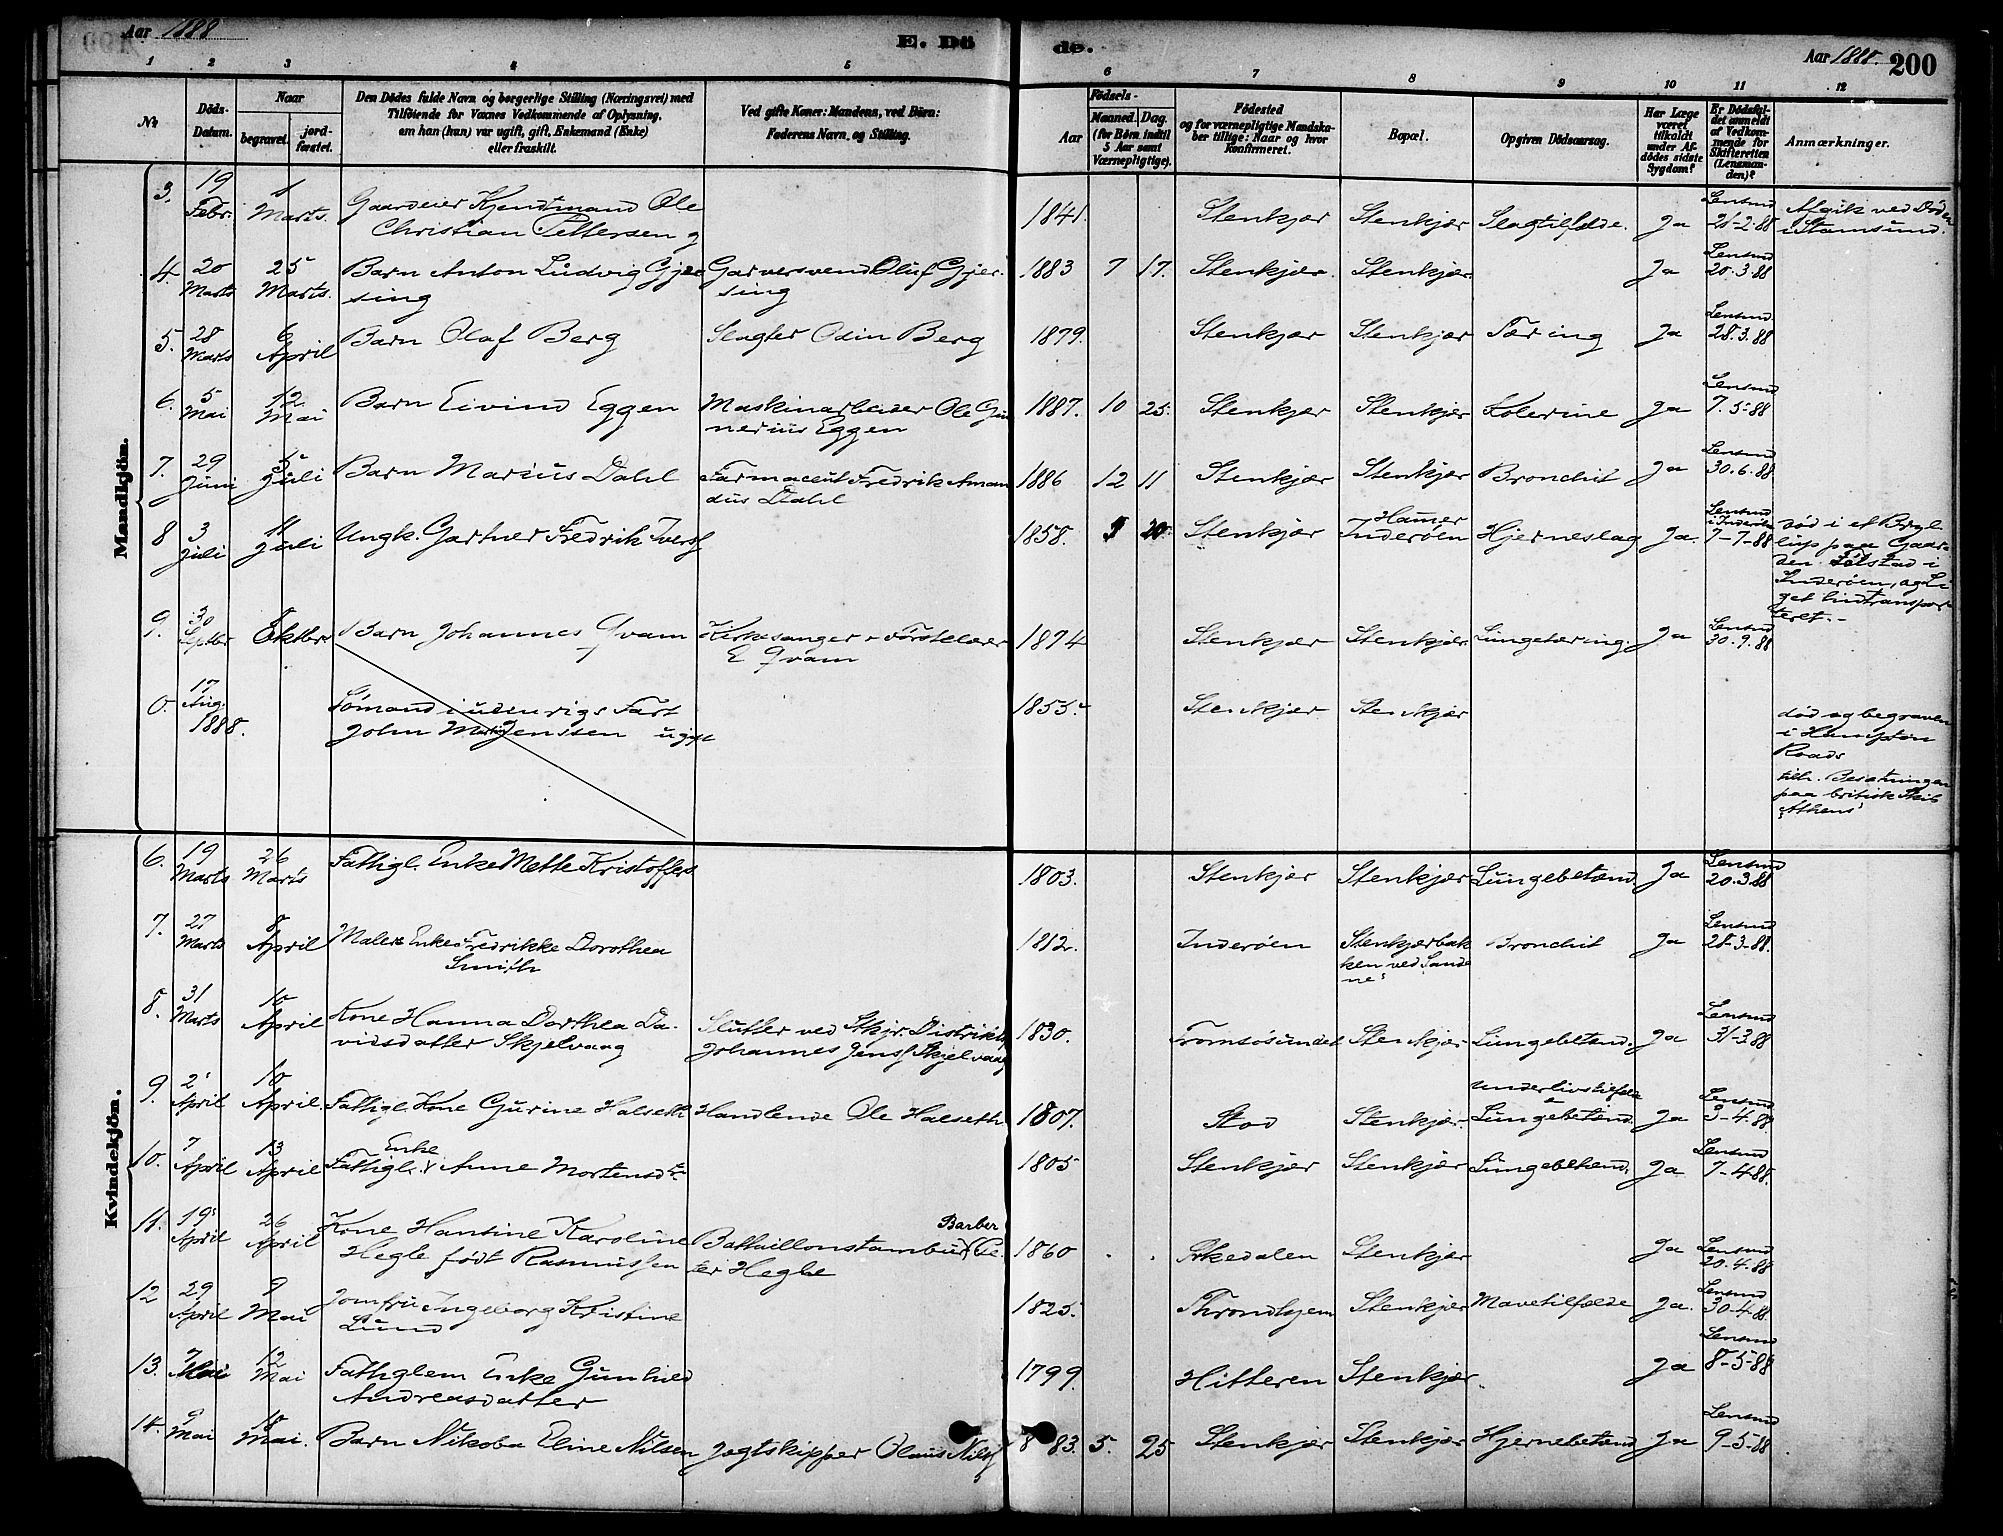 Aar 1888
E. Dö
de.
Aar 1888.
200
1 2 3 4 5 6 7 8 9 10 11 12
No
Döds-Datum.
Naar
begravet.
jord-fæstet.
Den Dödes fulde Navn og borgerlige Stilling (Næringsvei) med
Tilföiende for Voxnes Vedkommende af Oplysning,
om han (hun) var ugift, gift, Enkemand (Enke)
eller fraskilt.
Ved gifte Koner: Mandens, ved Börn:
Faderens Navn, og Stilling.
Födsels-
Aar
Maaned.
Dag.
(for Börn indtil
5 Aar samt
Værnepligtige).
Födested
og for værnepligtige Mandska-
ber tillige: Naar og hvor
Konfirmeret.
Bopæl.
Opgiven Dödsaarsag.
Har Læge
været
tilkaldt
under Af-
dödes sidste
Sygdom?
Er Dödsfal-
det anmeldt
af Vedkom-
mende for
Skifteretten
(Lensman-
den)?
Anmærkninger.
Mandkjön.
3. 19 Febr. 1 Marts. Gaardeier Kjendtmand Ole
Christian Pettersen g 1841. Stenkjær Stenkjær Slagtilfælde. Ja Lensmd 21-2-88 Afgik ved Døden
i Stamsund.
4. 20 Marts 25 Marts. Barn Anton Ludvig Gjer
sing Garversvend Oluf Gjer
sing 1883 7 17. Stenkjær. Stenkjær Ja Lensmd 20.3.88
5. 28 Marts 6 April Barn Olaf Berg Slagter Odin Berg 1879. Stenkjær Stenkjær Tæring Ja Lensmd 28.3.88
6. 5 Mai 12 Mai Barn Eivind Eggen Maskinarbeider Ole Gun
nerius Eggen 1887. 10 25. Stenkjær Stenkjær Kolerine Ja Lensmd 7.5.88
7. 29 Juni 5 Juli Barn Marius Dahl Farmaceut Fredrik Aman
dus Dahl 1886 12 11 Stenkjær Stenkjær Bronchit Ja Lensmd 30.6.88
8 3 Juli 11 Juli Ungk. Gartner Fredrik Iversf 1858. 20 Stenkjær Hamer
Inderöen Hjerneslag Ja. Lensmd i Inderöen 7-7-88 død i et Bryl
lup paa Gaar-
den Følstad i
Inderöen, og Li
get hidtranspor
teret.-
9. 30 Septbr Oktbr Barn Johannes Qvam Kirkesanger & Förstelærer
E Qvam 1874 Stenkjær Stenkjær Lungetæring. Ja Lensmd 30.9.88
0. 17 Aug. 1888. Sömand i udenrigs Fart
John Martin Jenssen ugift 1855. Stenkjær Stenkjær død og begraven
i Hampton
Roads
tilh. Besætningen
paa britisk Skib
"Athens"
Kvindekjön.
6. 19 Marts 26 Marts Fattigl. Enke Mette Kristoffers 1803. Stenkjær Stenkjær Lungebetænd. Ja Lensmd 20.3.88
7. 27 Marts 8 April Malers Enke Fredrikke Dorothea
Smith 1812. Inderöen Stenkjærbak
ken ved Sande
ne Bronchit Ja Lensmd 28-3-88.
8. 31 Marts 10 April Kone Hanna Dorthea Da-
vidsdatter Skjelvaag Slutter ved Stkjr. Distriktsf
Johannes Jensf Skjelvaag 1830. Tromsösundet Stenkjær. Lungebetænd. Ja Lensmd 31-3-88
9. 2 April 10 April. Fattigl. Kone Gurine Halseth Handlende Ole Halseth 1807. Stod Stenkjær. Underlivstilfælde
& Lungebetænd. Ja Lensmd 3-4-88.
10. 7 April 13 April Fattigl. Enke Anne Mortensdtr 1805 Stenkjær Stenkjær Lungebetænd. Ja Lensmd 7-4-88.
11. 19 April 26 April Kone Hantine Karoline
Hegle født Rasmussen Battaillonstambur, Barber Pe
ter Hegle 1860 Orkedalen Stenkjær Ja Lensmd 20.4.88
12 29 April 9 Mai Jomfru Ingeborg Kristine
Lund 1825. Throndhjem Stenkjær Mavetilfælde Ja. Lensmd 30-4-88.
13. 7 Mai 12 Mai Fattiglem Enke Gunhild
Andreasdatter 1799. Hitteren Stenkjær. Ja Lensmd 8-5-88
14. 9 Mai 18 Mai. Barn Nikoba Eline Nilsen Jegtskipper Olaus Nilsf 83. 5. 25 Stenkjær Stenkjær Hjernebetænd Ja Lensmd 9-5-88